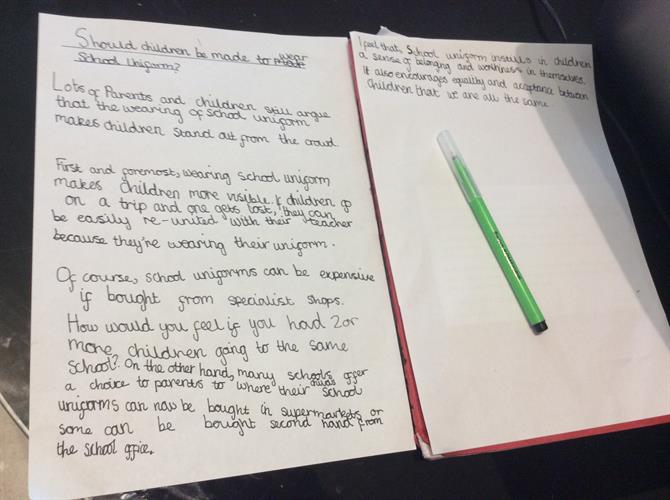 Should children be made to wear made
School Uniform?
Lots of Parents and children still argue
that the wearing of school uniform
makes children stand out from the crowd.
First and foremost, wearing school uniform
makes children more visible. If children go
on a trip and one gets lost, they can
be easily re-united with their teacher
because they're wearing their uniform.
Of course, school uniforms can be expensive
if bought from specialist shops.
How would you feel if you had 2 or
more children going to the same
school? On the other hand, many schools offer
a choice to parents to where their childs school
uniforms can now be bought in supermarkets or
some can be bought second hand from
the school office.
I feel that, school uniform instills in children
a sense of belonging and worthiness in themselves.
It also encourages equality and acceptance between
children that we are all the same